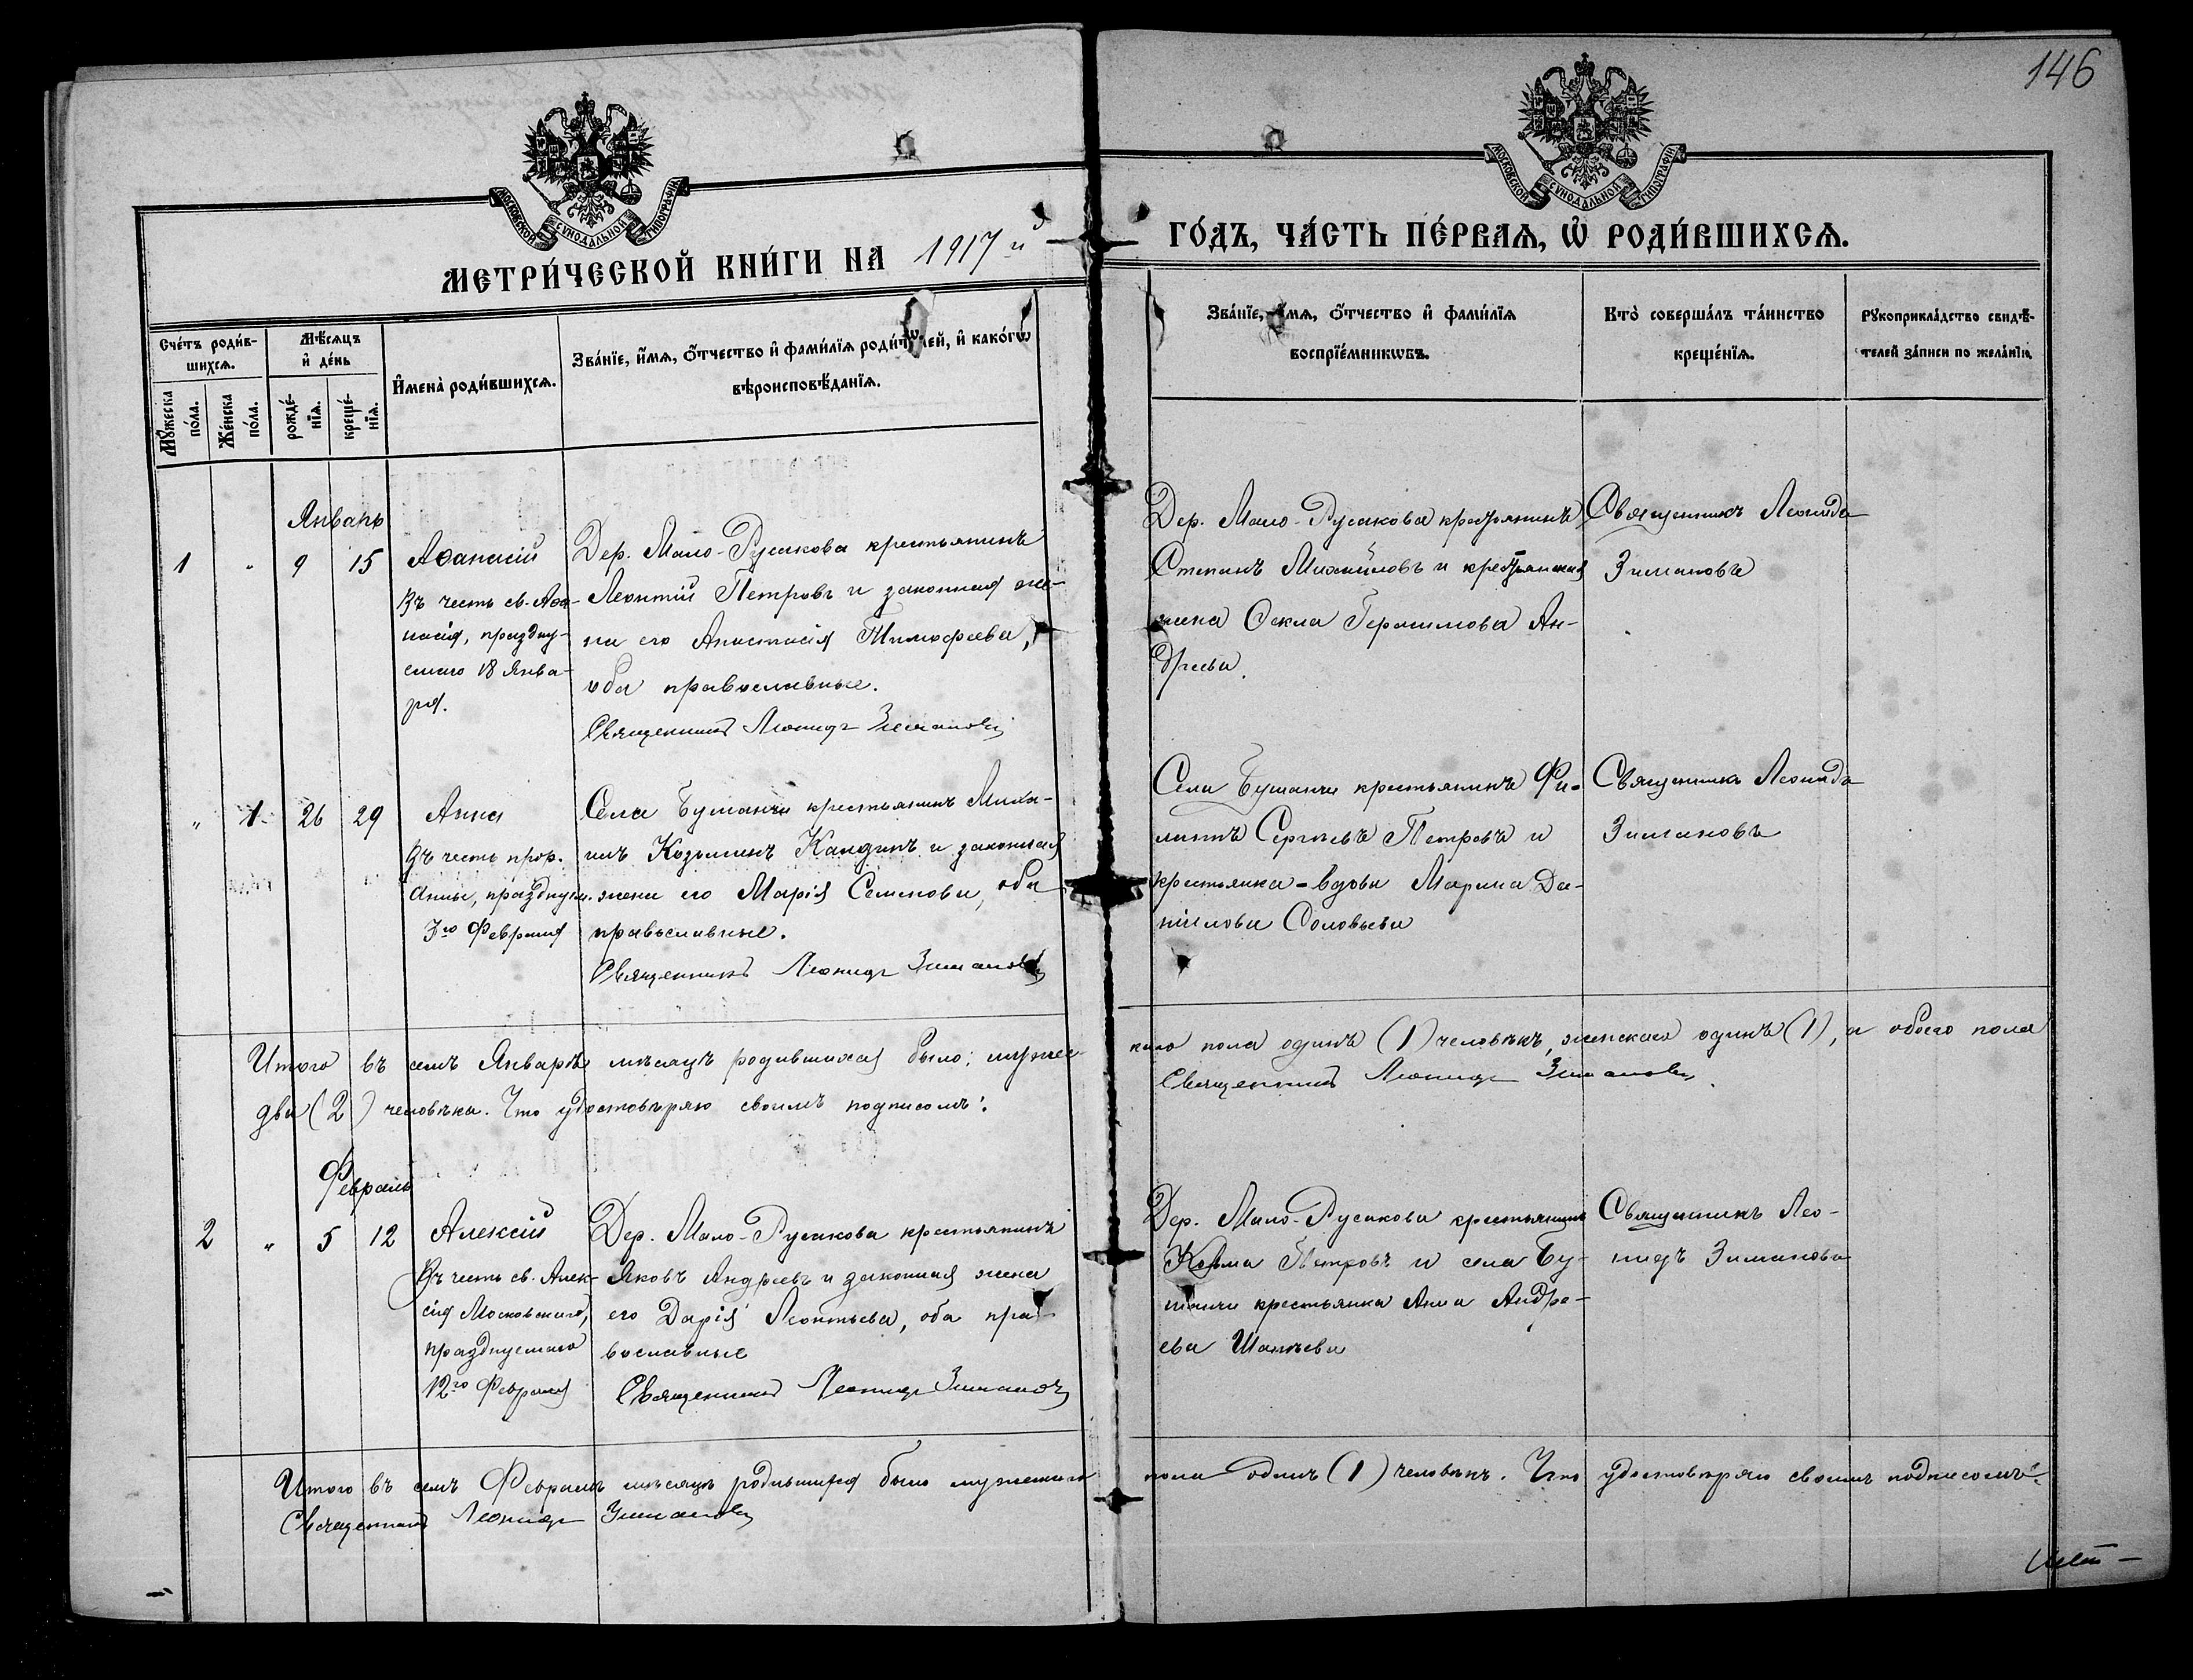 146
МОСКОВСКОЙ СѴНОДАЛЬНОЙ ТИПОГРАФІИ
МОСКОВСКОЙ СѴНОДАЛЬНОЙ ТИПОГРАФІИ
МЕТРИ́ЧЕСКОЙ КНИ́ГИ НА 1917 й
ГО́ДЪ, ЧА́СТЬ ПЕ́РВАЯ, Ѡ҆ РОДИ́ВШИХСЯ.
Сче́тъ роди́в-
шихся.
Мꙋ́жеска
по́ла.
Же́нска
по́ла.
Мѣ́сяцъ
и҆ де́нь
рожде́-
нїя.
креще́-
нїя.
И҆мена̀ роди́вшихся.
Зва́нїе, и҆́мя, ѻ҆́тчество и҆ фами́лїя роди́телей, и҆ како́гѡ
вѣроисповѣ́данїя.
Зва́нїе, и҆́мя, ѻ҆́тчество и҆ фами́лїя
воспрїе́мникѡвъ.
Кто̀ соверша́лъ та́инство
креще́нїя.
Рꙋкоприкла́дство свидѣ́-
телей за́писи по жела́нїю.
Январь
1 " 9 15
Аѳанасій
Въ честь св. Аѳа-
насія, праздну-
емаго 18 Янва-
ря.
Дер. Мало-Русакова крестьянинъ
Леонтій Петровъ и законная же-
на его Анастасія Тимофеева,
оба православные.
Священникъ Леонидъ Зимановъ
Дер. Мало-Русакова крестьянинъ
Степанъ Михайловъ и крестьянская
жена Ѳекла Герасимова Ан-
дреева.
Священникъ Леонидъ
Зимановъ
" 1 26 29
Анна
Въ честь прор.
Анны, празднуем.
3го Февраля
Села Бушанчи крестьянинъ Миха-
илъ Козьминъ Кандинъ и законная
жена его Марія Семенова, оба
православные.
Священникъ Леонидъ Зимановъ
Села Бушанчи крестьянинъ Фи-
липпъ Сергѣевъ Петровъ и
крестьянка-вдова Марина Да-
нилова Соловьева
Священникъ Леонидъ
Зимановъ
Итого въ семъ Январѣ мѣсяцѣ родившихся было: мужес-
каго пола одинъ (1) человѣкъ, женскаго одинъ (1), а обоего пола
два (2) человѣка. Что удостовѣряю своимъ подписомъ:
Священникъ Леонидъ Зимановъ
Февраль
2 " 5 12
Алексій
Въ честь св. Алек-
сія Московскаго,
празднуемаго
12го Февраля
Дер. Мало-Русакова крестьянинъ
Яковъ Андреевъ и законная жена
его Дарія Леонтьева, оба пра-
вославные
Священникъ Леонидъ Зимановъ
Дер. Мало-Русакова крестьянинъ
Козьма Петровъ и села Бу-
шанчи крестьянка Анна Андре-
ева
Священникъ Лео-
нидъ Зимановъ
Итого въ семъ Февралѣ мѣсяцѣ родившихся было мужескаго
пола одинъ (1) человѣкъ. Что удостовѣряю своимъ подписомъ:
Священникъ Леонидъ Зимановъ